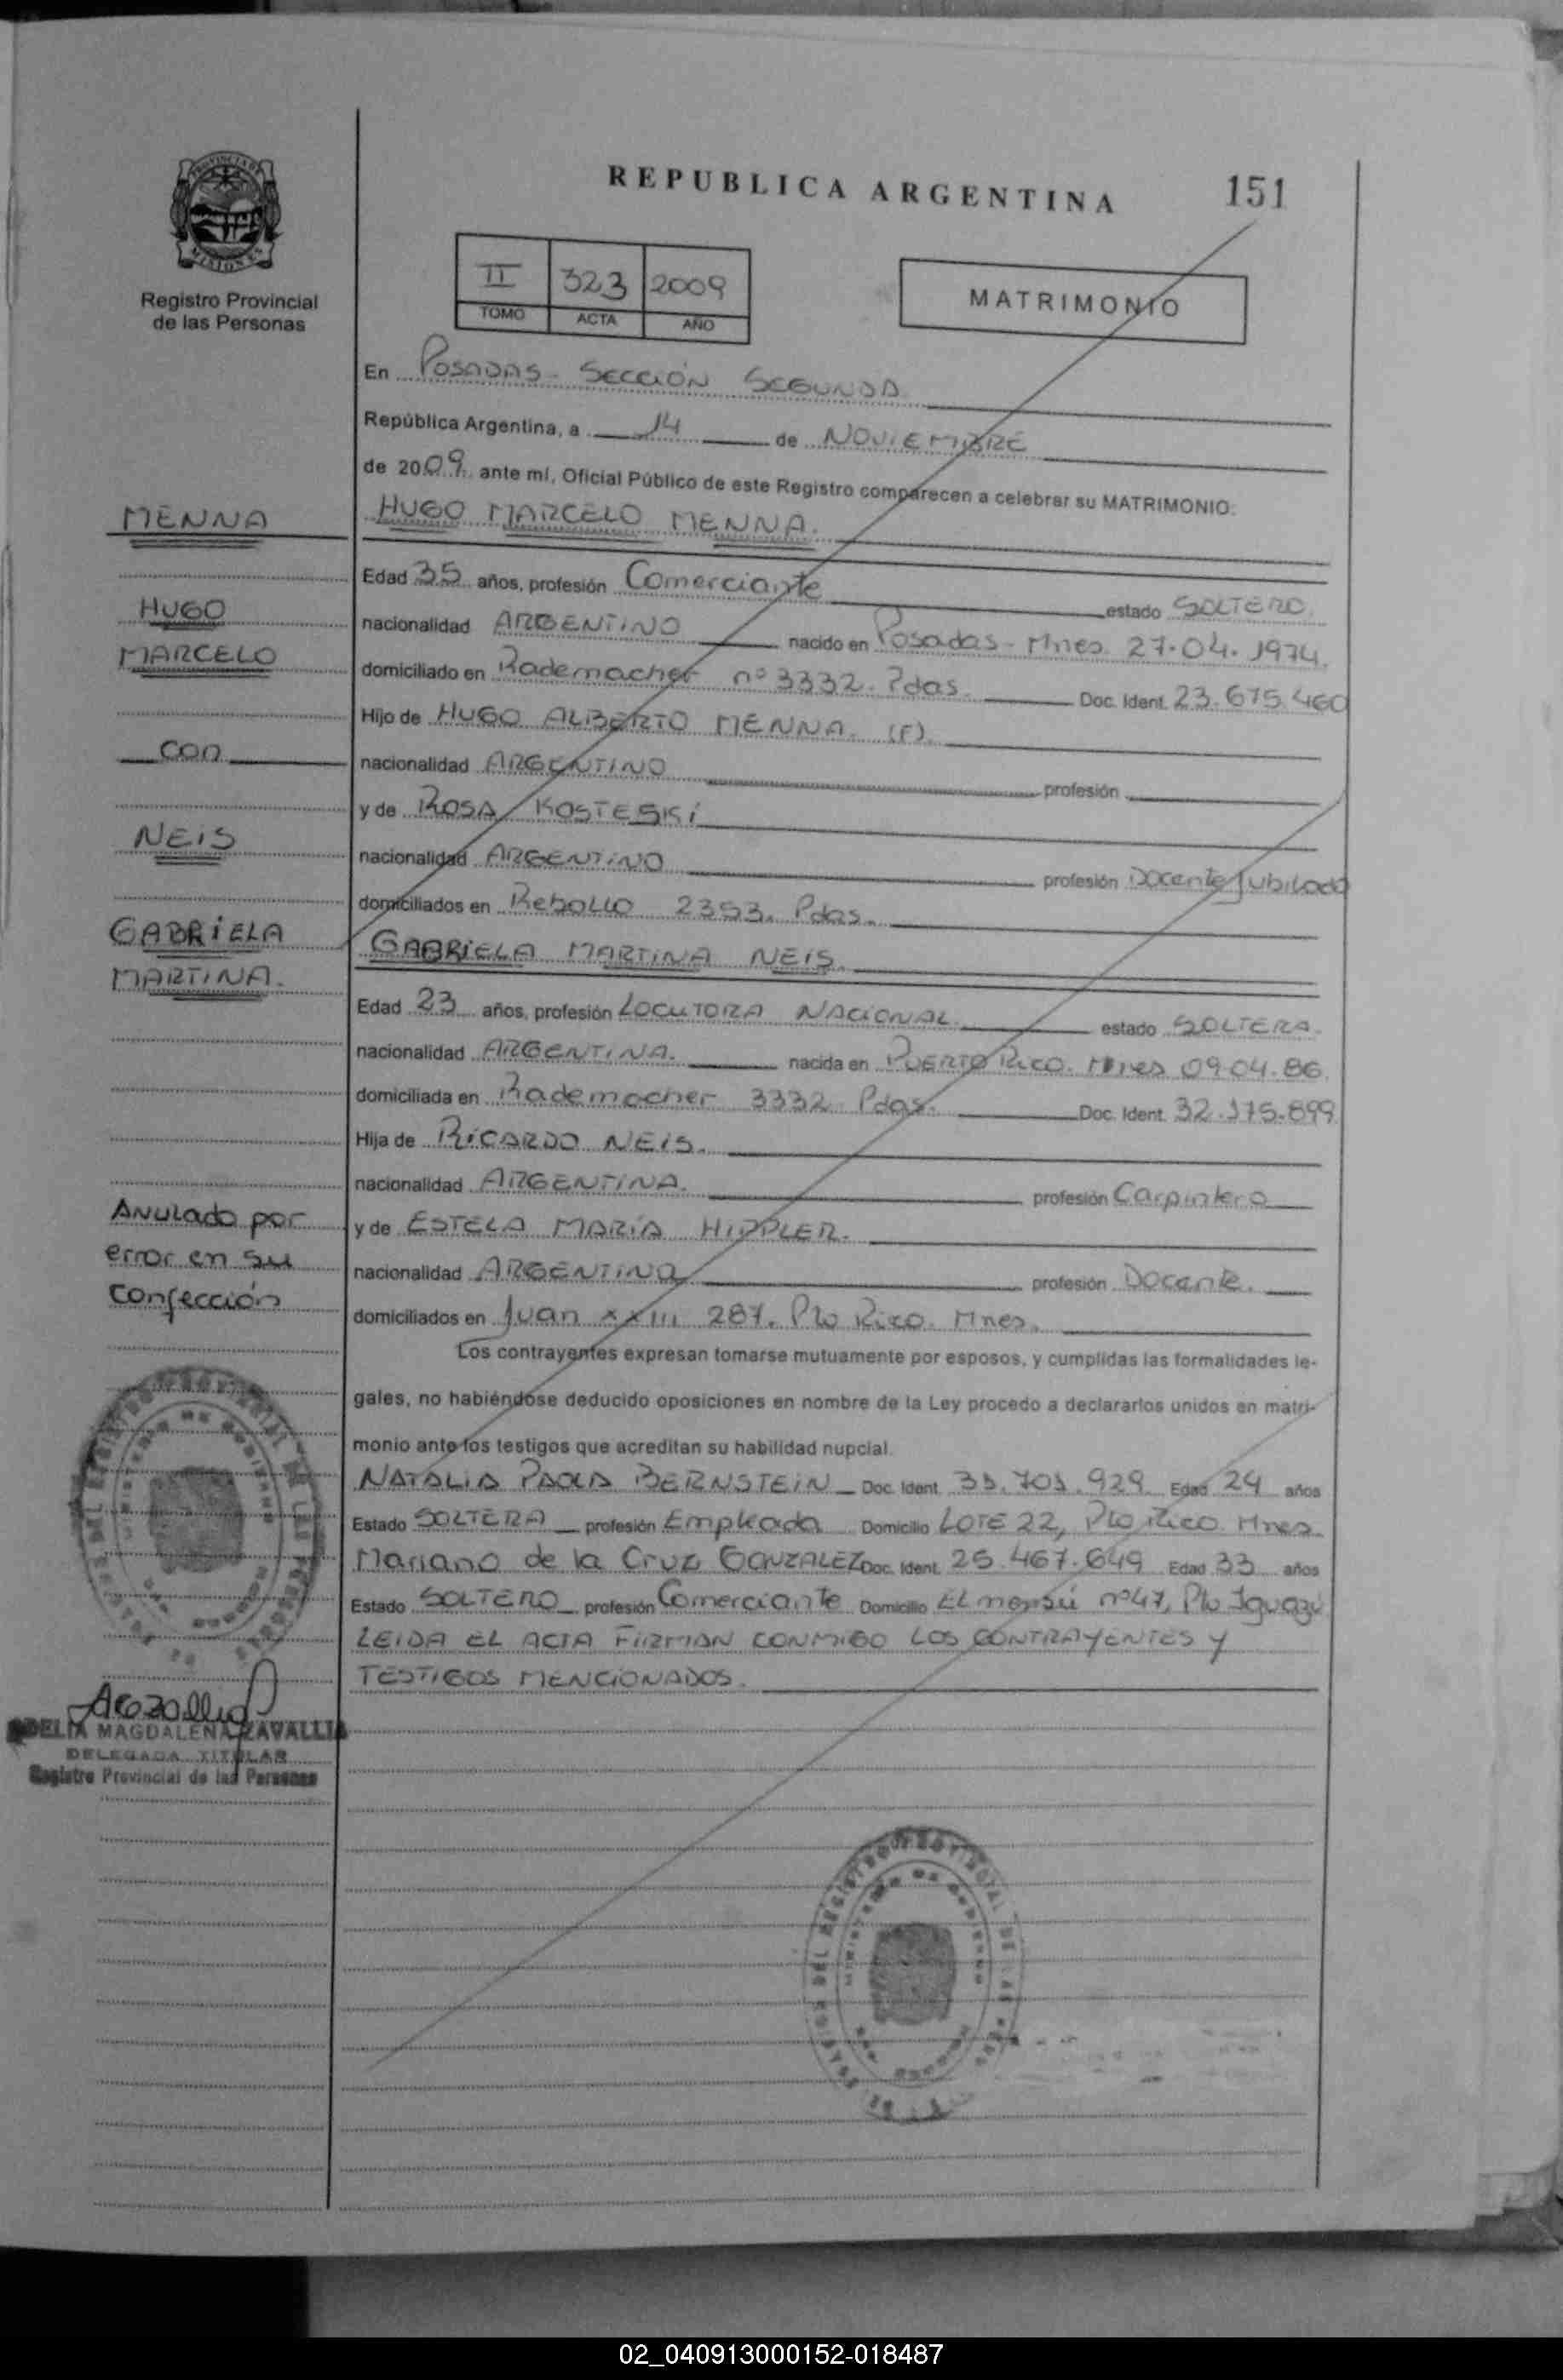 REPUBLICA ARGENTINA 151
PROVINCIA DE
MISIONES
Registro Provincial
de las Personas
II 323 2009
TOMO ACTA AÑO
MATRIMONIO
En POSADAS - SECCIÓN SEGUNDA
República Argentina, a 14 de NOVIEMBRE
de 2009 ante mí, Oficial Público de este Registro comparecen a celebrar su MATRIMONIO:
MENNA
HUGO MARCELO MENNA.
Edad 35 años, profesión Comerciante estado SOLTERO.
HUGO
nacionalidad ARGENTINO nacido en Posadas - Mnes. 27.04.1974.
MARCELO
domiciliado en Rademacher nº 3332. Pdas. Doc. Ident. 23.675.460
Hijo de HUGO ALBERTO MENNA. (F).
con
nacionalidad ARGENTINO profesión
y de ROSA KOSTESKI
NEIS
nacionalidad ARGENTINO profesión Docente Jubilada
domiciliados en Rebollo 2353. Pdas.
GABRIELA
GABRIELA MARTINA NEIS.
MARTINA.
Edad 23 años, profesión LOCUTORA NACIONAL. estado SOLTERA.
nacionalidad ARGENTINA. nacida en PUERTO RICO. Mnes 09.04.86.
domiciliada en Rademacher 3332 Pdas. Doc. Ident. 32.175.899
Hija de RICARDO NEIS.
nacionalidad ARGENTINA. profesión Carpintero
Anulado por
y de ESTELA MARÍA HIPPLER.
error en su
nacionalidad ARGENTINA profesión Docente.
Confección
domiciliados en Juan XXIII 287. Pto Rico. Mnes.
Los contrayentes expresan tomarse mutuamente por esposos, y cumplidas las formalidades le-
gales, no habiéndose deducido oposiciones en nombre de la Ley procedo a declararlos unidos en matri-
monio ante los testigos que acreditan su habilidad nupcial.
NATALIA PAOLA BERNSTEIN Doc. Ident. 31.701.929 Edad 24 años
Estado SOLTERA profesión Empleada Domicilio LOTE 22, Pto Rico Mnes.
Mariano de la Cruz GONZALEZ Doc. Ident. 25.467.649 Edad 33 años
Estado SOLTERO profesión Comerciante Domicilio El mensú nº47, Pto Iguazú
LEIDA EL ACTA FIRMAN CONMIGO LOS CONTRAYENTES Y
TESTIGOS MENCIONADOS.
ADELIA MAGDALENA ZAVALLIA
DELEGADA TITULAR
Registro Provincial de las Personas
02_040913000152-018487